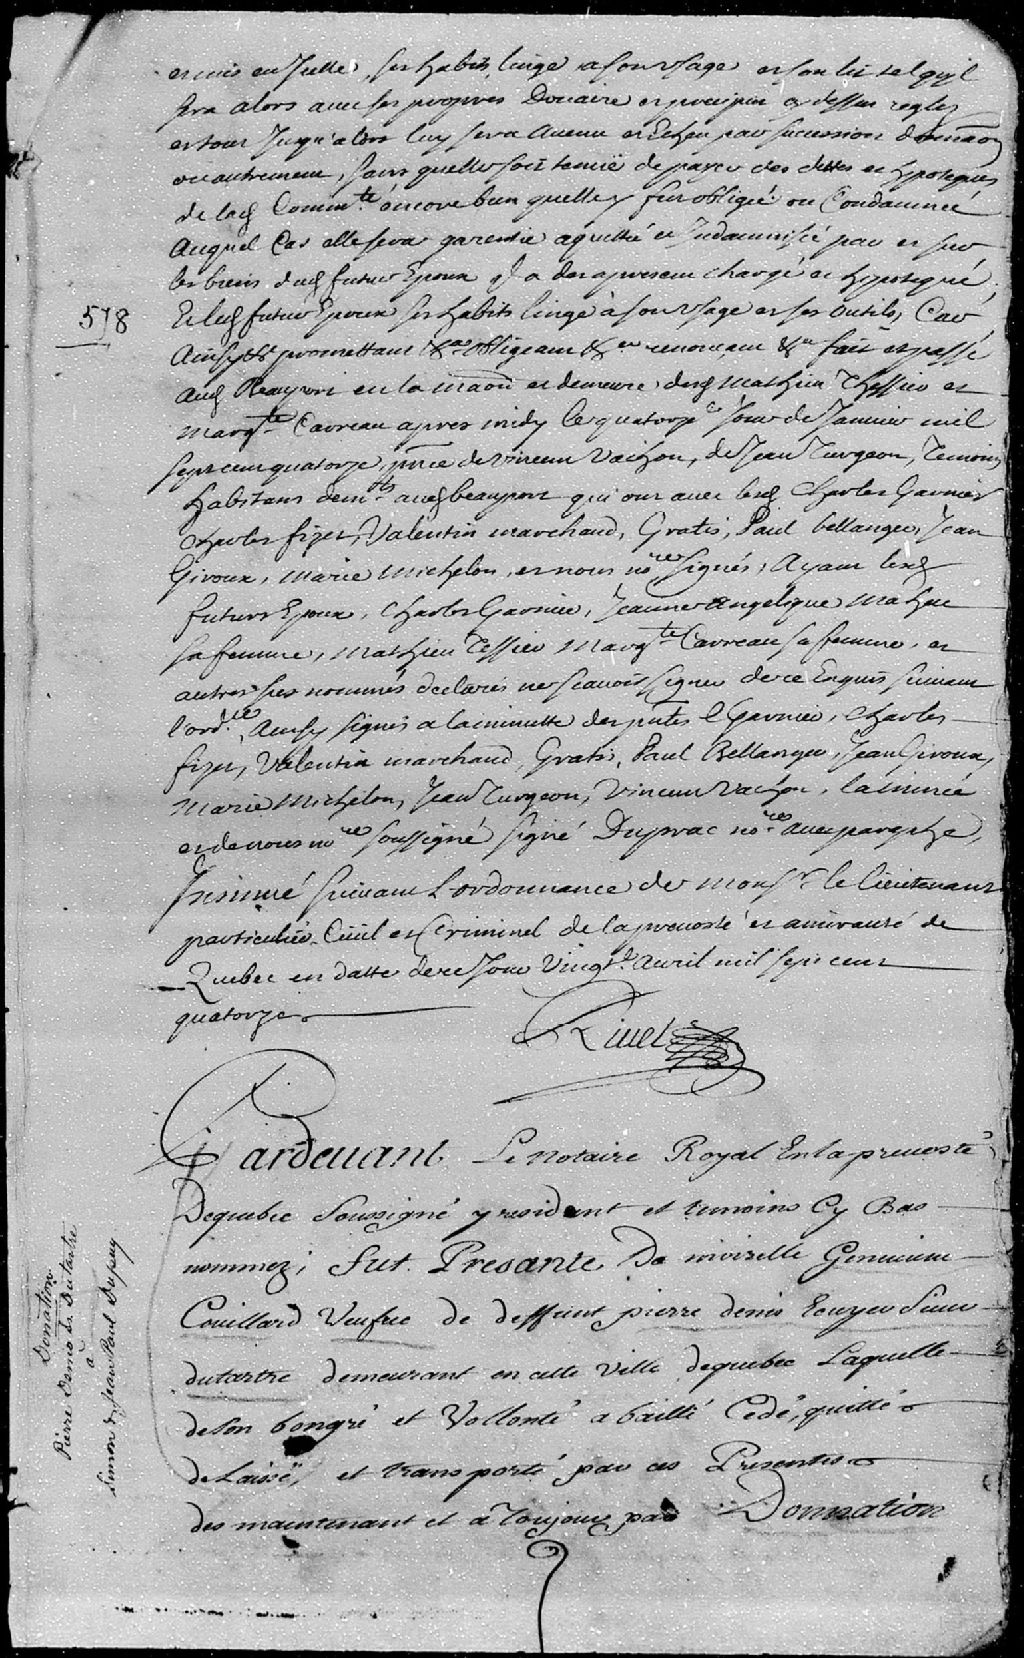 et mis en Icelle, ses habits, linge a son usage et son lit tel qu'il
sera alors avec ses propres Douaire et preciput cy dessus reglez
et tout Jusqu'alors luy sera auenu et Echeu par sucession donnaõn
ou autrement, sans quelle soit tenuë de payer des dettes et hypoteques
de lad Comm.té encore bien quelle y fut obligée ou Condamnée
Auquel Cas elle sera garentie aquittée et Indamnisée par et sur
les biens dud futur Epoux Il a des apresent chargé et hypotequé,
578
Et led futur Epoux ses habits linge à son usage et ses outils, Car
Ainsy &c promettant &a obligeant &a renonceant &a fait et passé
aud Beauport en la maõn et demeure desd Mathieu Thessier et
Marg.te Carreau apres midy le quatorze.e Jour de Januier mil
sept cent quatorze, pnce de Vincent Vachon, de Jean Turgeon, Temoins
habitans dem.ts aud beauport qui ont auec lesd Charles Garnier
Charles fizet, Valentin marchand, Gratis, Paul bellanger, Jean
Giroux, Marie Michelon, et nous no.re signés, Ayant lesd
futurs Epoux, Charles Garnier, Jeanne Angelique Maheu
sa femme, Mathieu Tessier Marg.te Carreau sa femme, et
autres sus nommés declarés ne scauoir signer de ce Enquis suiuant
l'ord.ce, Ainsy signés a la minutte des pntes C Garnier, Charles
fizet, Valentin marchand, Gratis, Paul Bellanger, Jean Giroux,
Marie Michelon, Jean Turgeon, Vincent Vachon, la minee
et de nous no.re soussigné signé Duprac no.re auec paraphe,
Insinué suiuant L'ordonnance de Mons.r le lieutenant
particulier Ciuil et Criminel de la preuosté et amirauté de
Quebec en datte de ce Jour Vingt.e Auril mil sept cent
quatorze
Riuet
Pardeuant Le Notaire Royal En la preuosté
Dequebec Soussigné y resident et temoins Cy Bas
nommez; fut Presante Damoiselle Geneuieue
Couillard Veufue de deffunt pierre denis Ecuyer Sieur
dutartre demeurant en cette Ville dequebec Laquelle
de son bongré et Vollonté a baillé Cedé, quitté
delaissé, et transporté par ces Presentes
des maintenant et à Toujours par Donnation
Donation
Pierre Denis du Dutartre
a
Simon & Jean Paul Dupuy